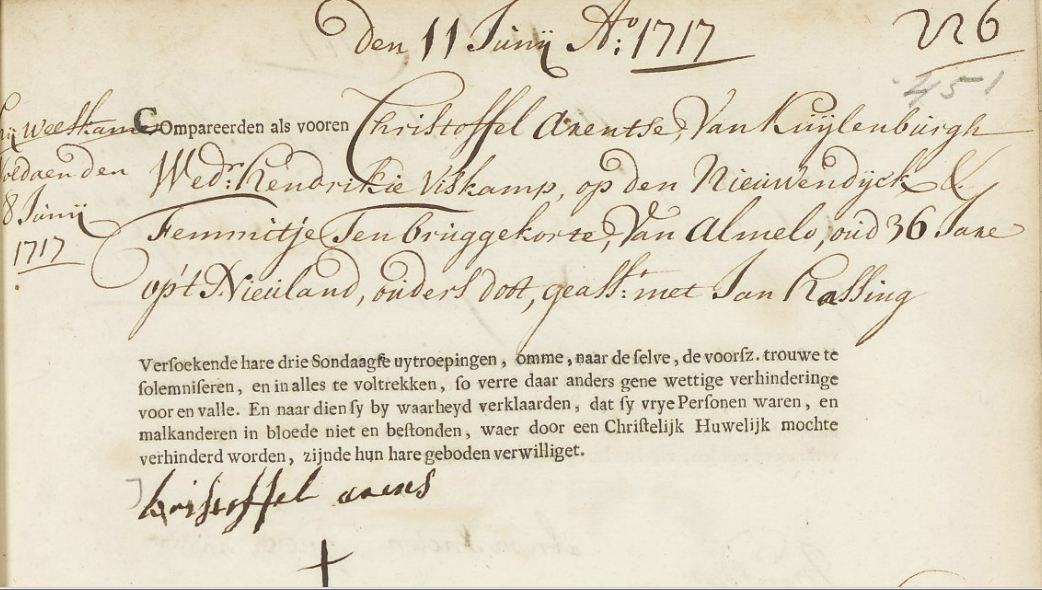 den 11 Junij Ao: 1717
226
451
Weeskamer
voldaen den
8 Junij
1717
Compareerden als vooren Christoffel Arentse, Van Kuijlenburgh
Wedr: Hendrikie Viskamp, op den Nieuwendyck &
Femmitje Tenbruggekorte, Van Almelo, oud 36 Jare
op't Nieuland, ouders doot, geasst: met Jan Rassing
Versoekende hare drie Sondaagse uytroepingen, omme, naar de selve, de voorsz. trouwe te
solemniseren, en in alles te voltrekken, so verre daar anders gene wettige verhinderinge
voor en valle. En naar dien sy by waarheyd verklaarden, dat sy vrye Personen waren, en
malkanderen in bloede niet en bestonden, waer door een Christelijk Huwelijk mochte
verhinderd worden, zijnde hun hare geboden verwilliget.
kristoffel arens